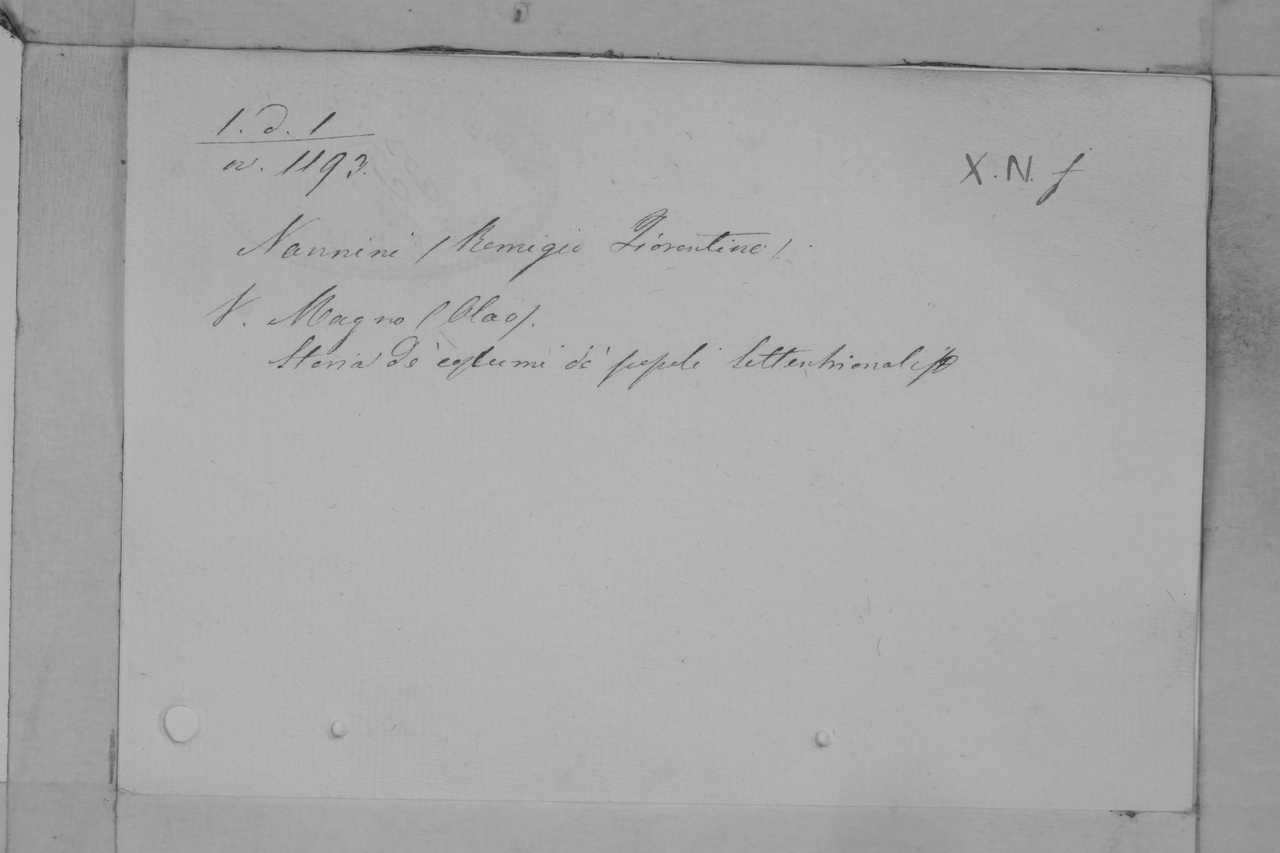 1. d. 1
n. 1193.
X. N. f
Nannini (Remigio Fiorentino).
V. Magno (Olao).
Storia de' costumi de' popoli settentrionali